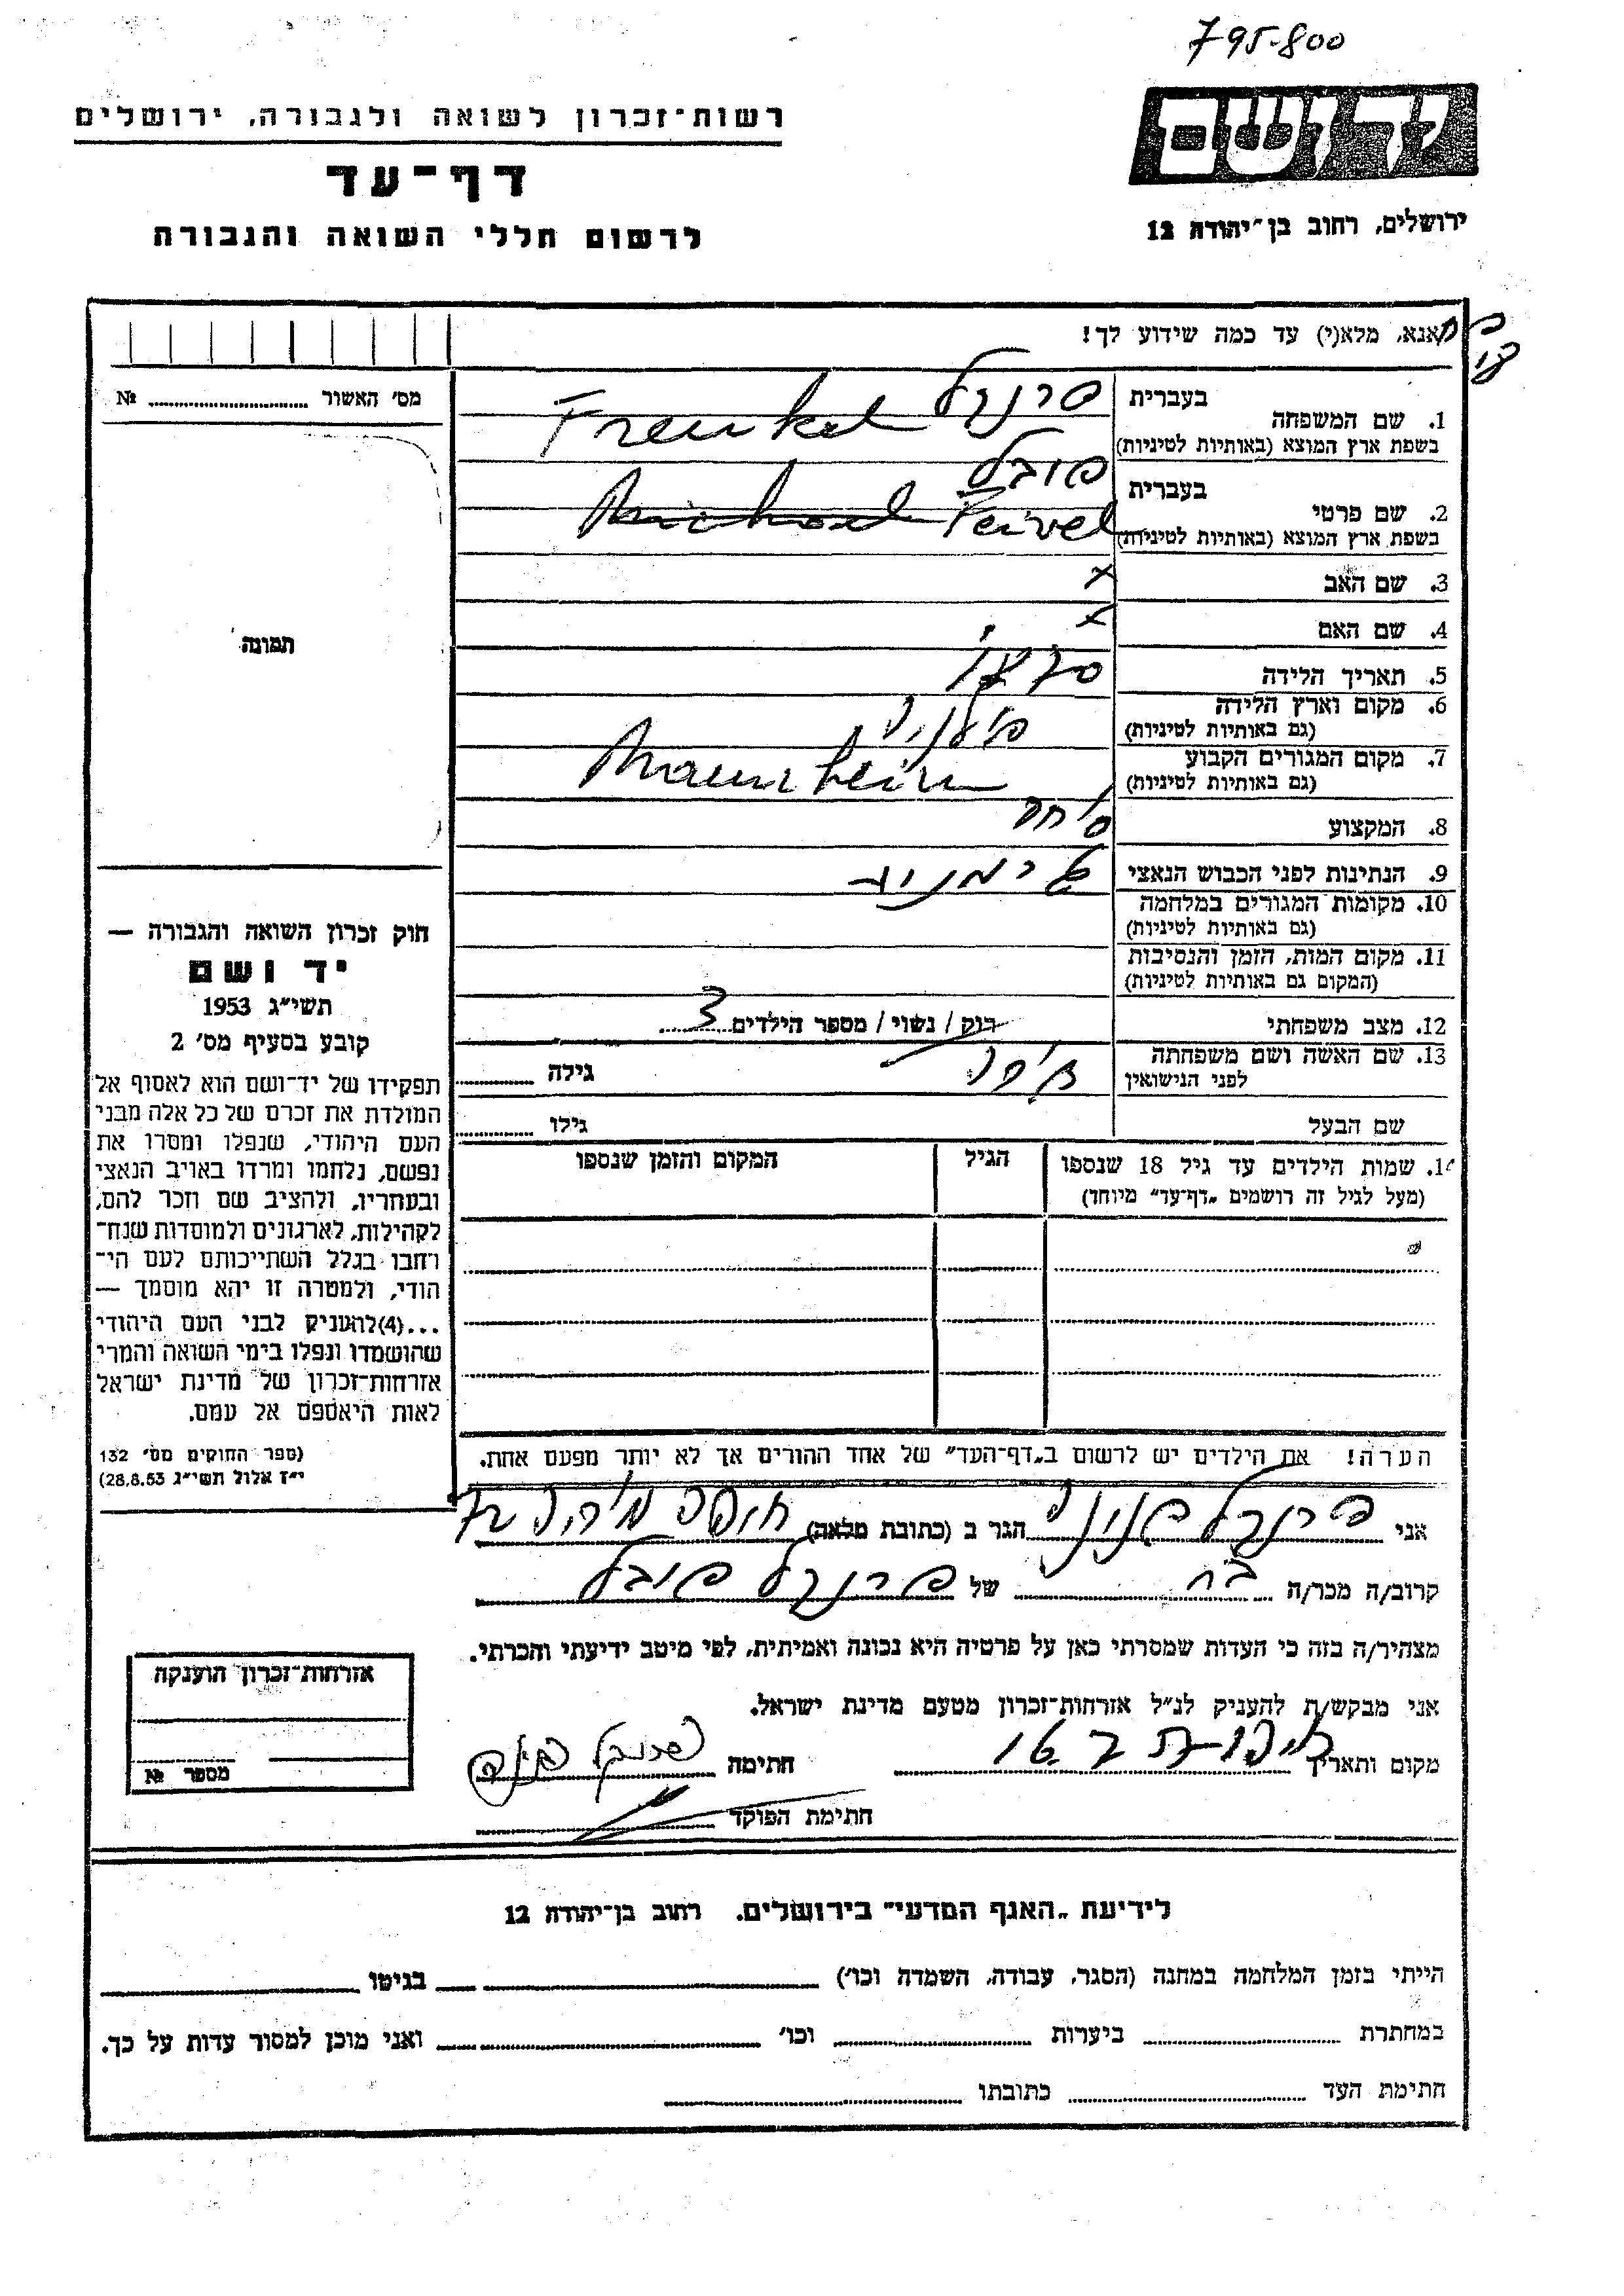 795-800
יד ושם
ירושלים, רחוב בן־יהודה 12
רשות־זכרון לשואה ולגבורה, ירושלים
דף־עד
לרשום חללי השואה והגבורה
אנא, מלא(י) עד כמה שידוע לך!
מס׳ האשור №
תמונה
1. שם המשפחה
בעברית פרנקל
בשפת ארץ המוצא (באותיות לטיניות) Frenkel
2. שם פרטי
בעברית פיבל
בשפת ארץ המוצא (באותיות לטיניות) Michael Feivel
3. שם האב x
4. שם האם x
5. תאריך הלידה
6. מקום וארץ הלידה
(גם באותיות לטיניות) פולניה
7. מקום המגורים הקבוע
(גם באותיות לטיניות) Mannheim
8. המקצוע סוחר
9. הנתינות לפני הכבוש הנאצי
10. מקומות המגורים במלחמה
(גם באותיות לטיניות)
11. מקום המות, הזמן והנסיבות
(המקום גם באותיות לטיניות)
12. מצב משפחתי רוק / נשוי / מספר הילדים 3
13. שם האשה ושם משפחתה
לפני הנישואין גילה
שם הבעל גילו
14. שמות הילדים עד גיל 18 שנספו
(מעל לגיל זה רושמים „דף־עד״ מיוחד)
הגיל
המקום והזמן שנספו
חוק זכרון השואה והגבורה —
יד ושם
תשי״ג 1953
קובע בסעיף מס׳ 2
תפקידו של יד־ושם הוא לאסוף אל
המולדת את זכרם של כל אלה מבני
העם היהודי, שנפלו ומסרו את
נפשם, נלחמו ומרדו באויב הנאצי
ובעוזריו, ולהציב שם וזכר להם,
לקהילות, לארגונים ולמוסדות שנח־
רבו בגלל השתייכותם לעם הי־
הודי, ולמטרה זו יהא מוסמך —
...(4) להעניק לבני העם היהודי
שהושמדו ונפלו בימי השואה והמרי
אזרחות־זכרון של מדינת ישראל
לאות היאספם אל עמם.
(ספר החוקים מס׳ 132
י״ז אלול תשי״ג 28.8.53)
הערה! את הילדים יש לרשום ב„דף־העד״ של אחד ההורים אך לא יותר מפעם אחת.
אני פרנקל הגר ב (כתובת מלאה)
קרוב/ה מכר/ה בת של פרנקל פיבל
מצהיר/ה בזה כי העדות שמסרתי כאן על פרטיה היא נכונה ואמיתית, לפי מיטב ידיעתי והכרתי.
אני מבקש/ת להעניק לנ״ל אזרחות־זכרון מטעם מדינת ישראל.
מקום ותאריך חתימה
חתימת הפוקד
אזרחות־זכרון הוענקה
מספר №
לידיעת „האגף המדעי״ בירושלים, רחוב בן־יהודה 12
הייתי בזמן המלחמה במחנה (הסגר, עבודה, השמדה וכו׳) בגיטו
במחתרת ביערות וכו׳ ואני מוכן למסור עדות על כך.
חתימת העד כתובתו